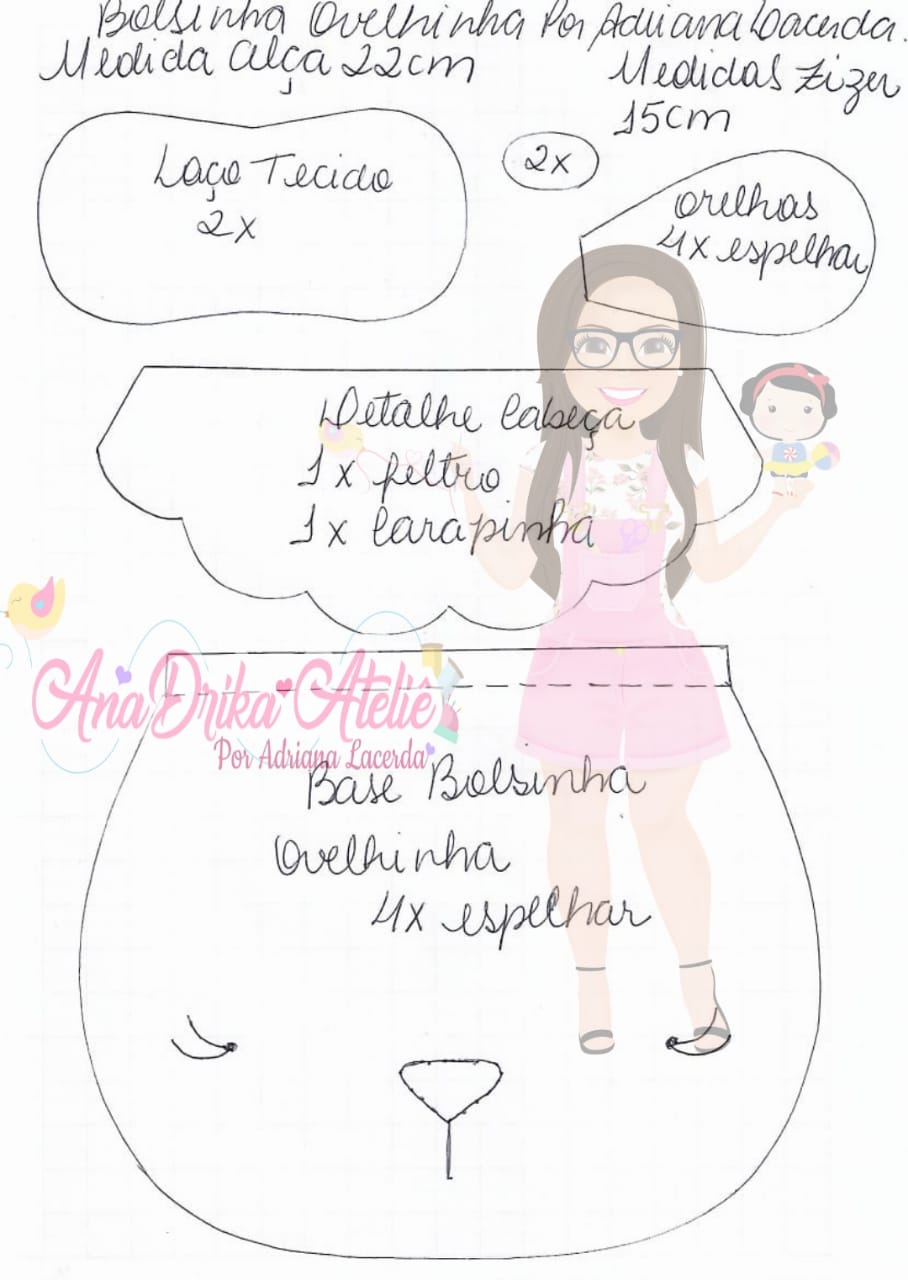 Bolsinha Ovelhinha Por Adriana Lacerda.
Medida Alça 22cm
Medidas Zizer
15cm
Laço Tecido
2x
2x
Orelhas
4x espelhar
Detalhe Cabeça
1x feltro
1x Carapinha
AnaDrika Ateliê
Por Adriana Lacerda
Base Bolsinha
Ovelhinha
4x espelhar